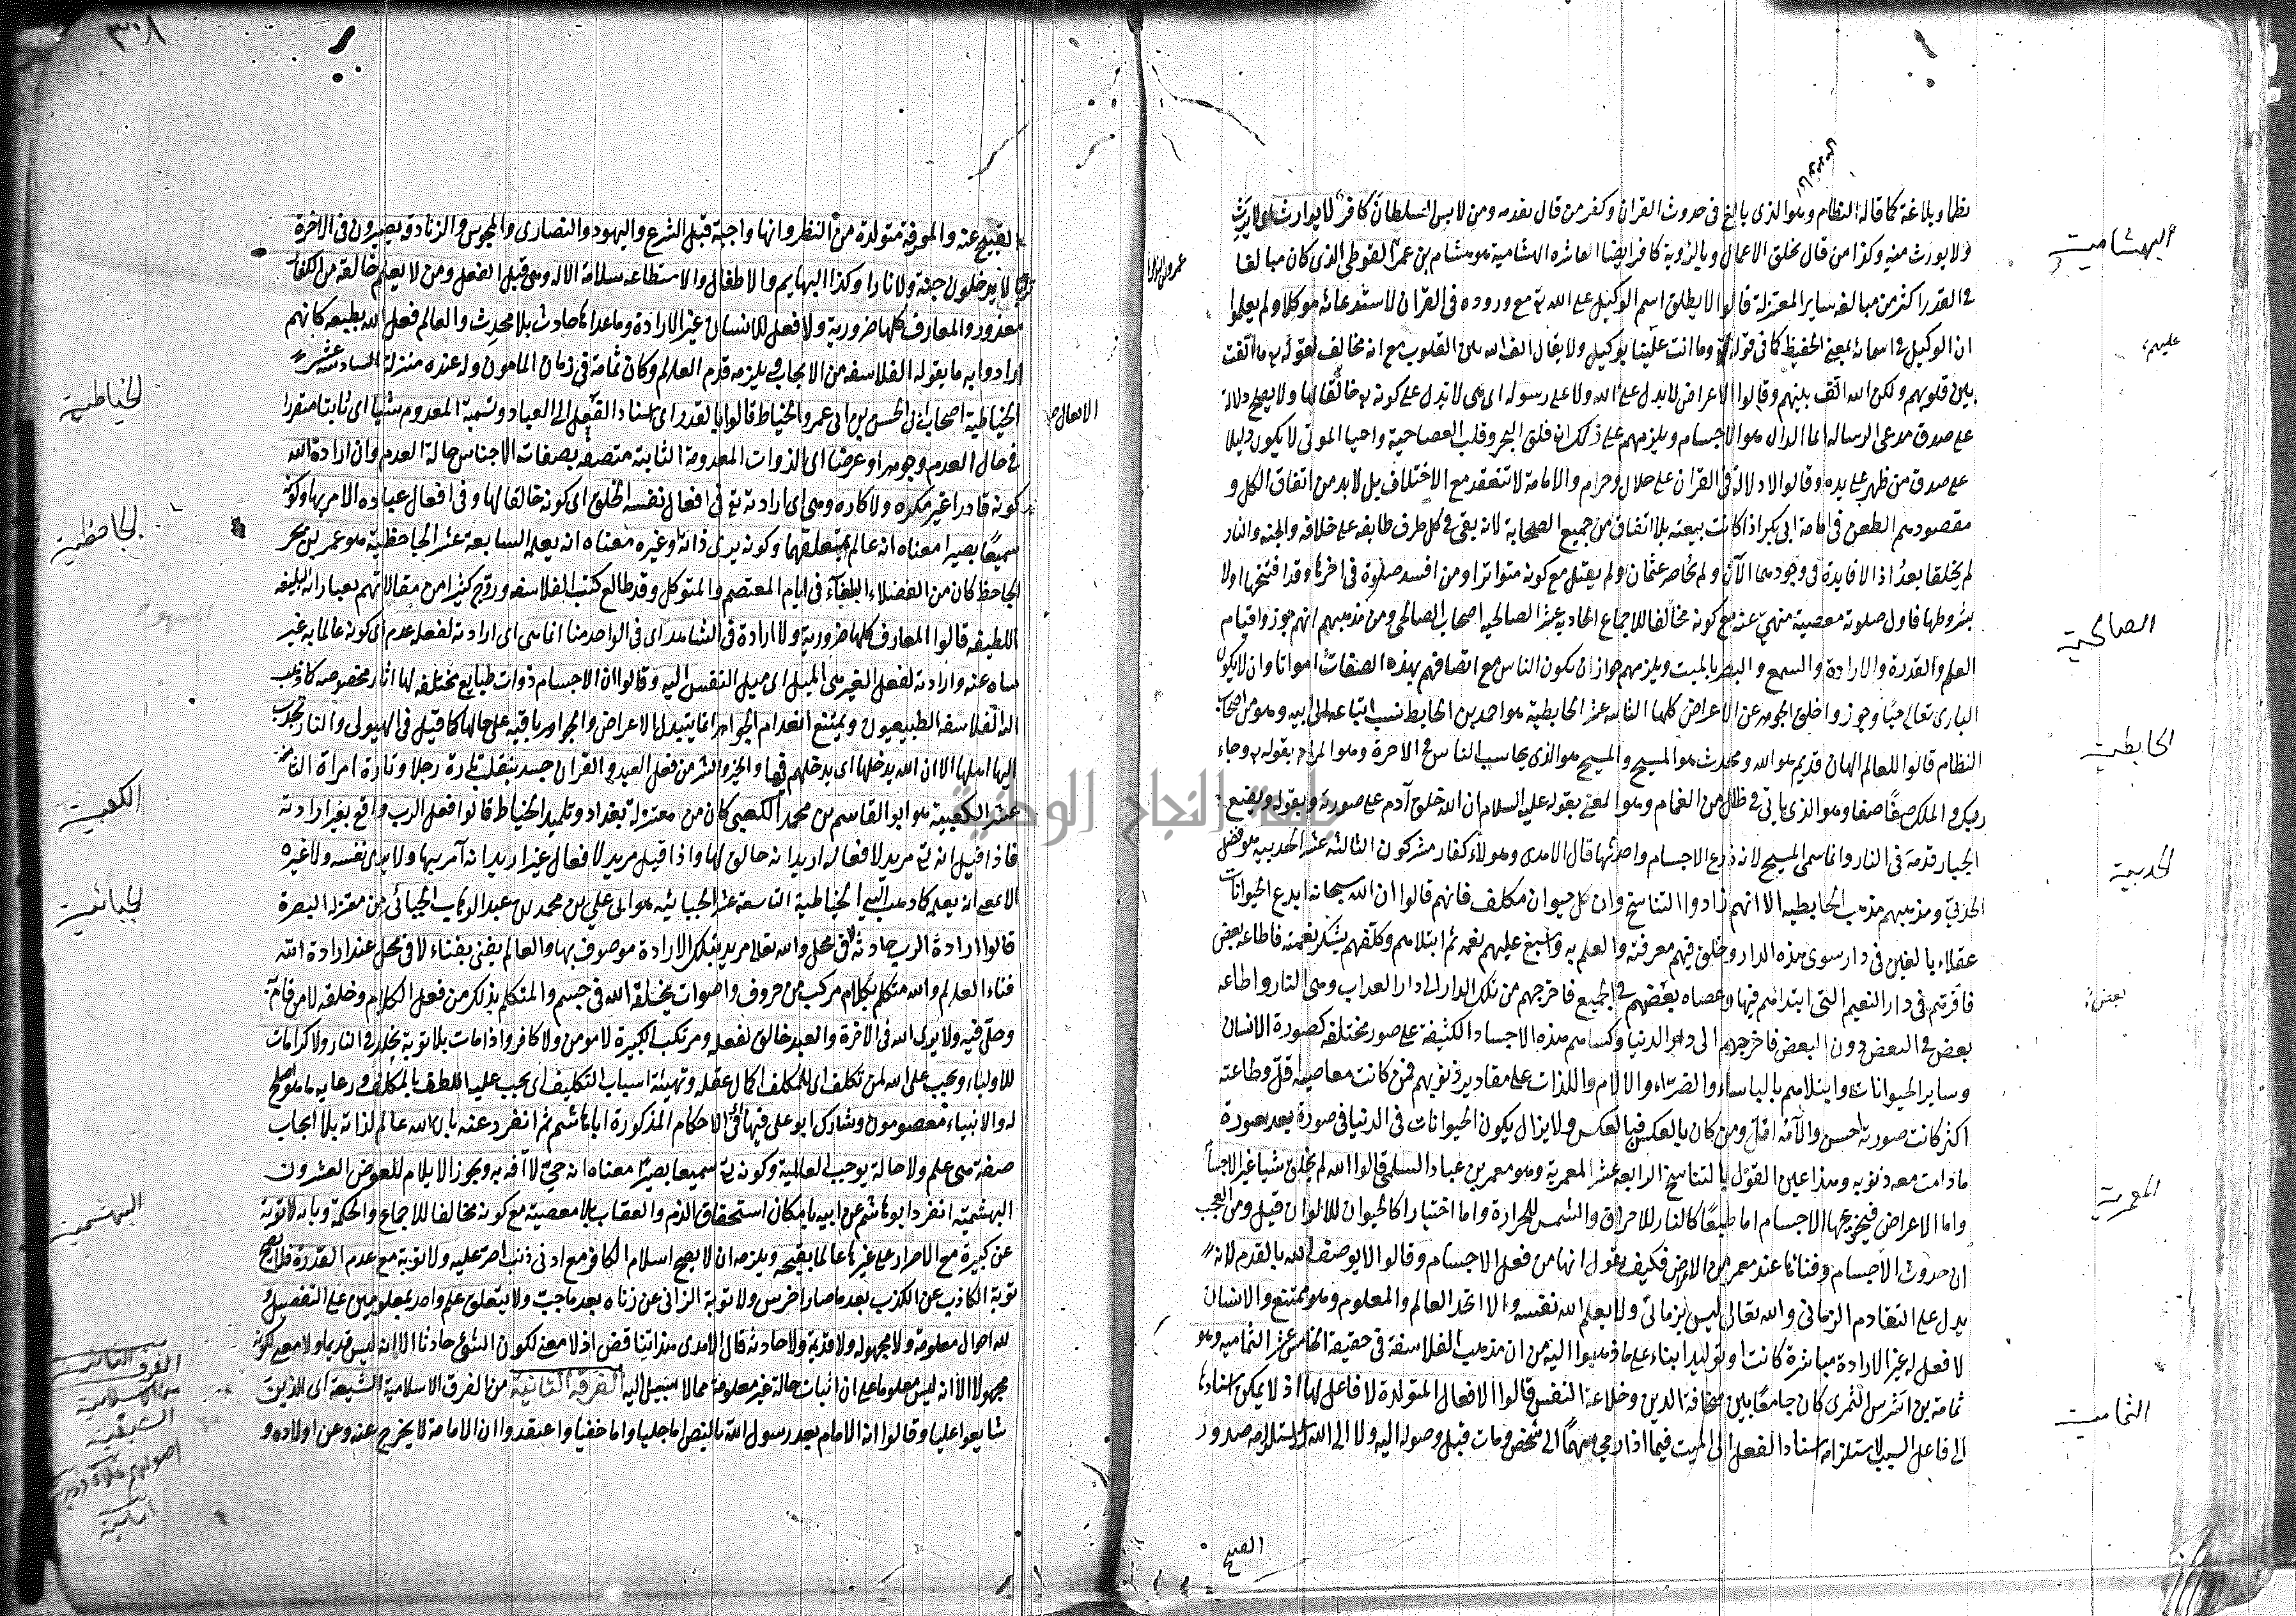 نظما وبلاغة كما قاله النظام وهو الذى بالغ فى حدوث القران وكفر من قال بقدمه ومن لابس السلطان كافر لا يوارث اى لا يرث
ولا يورث منه وكذا من قال بخلق الاعمال وبالرؤية كافر ايضا العاشرة الهشامية هو هشام بن عمر الفوطى الذى كان مبالغا
فى القدر اكثر من مبالغة ساير المعتزلة قالوا لا يطلق اسم الوكيل على الله تع مع وروده فى القران لاستدعائه موكلا ولم يعلموا
ان الوكيل فى اسمائه بمعنى الحفيظ كما فى قوله تع وما انت عليهم بوكيل ولا يقال الف الله بين القلوب مع انه مخالف لقوله تع ما الفت
بين قلوبهم ولكن الله الف بينهم وقالوا الاعراض لا يدل على الله ولا على رسوله اى هى لا تدل على كونه تع خالقا لها ولا يصلح دلالة
على صدق مدعى الرسالة انما الدال هو الاجسام ويلزمهم على ذلك ان فلق البحر وقلب العصا حية واحيا الموتى لا يكون دليلا
على صدق من ظهر على يده وقالوا لا دلالة فى القران على حلال وحرام والامامة لا تنعقد مع الاختلاف بل لا بد من اتفاق الكل و
مقصودهم الطعن فى امامة ابى بكر اذ كانت بيعته بلا اتفاق من جميع الصحابة لانه بقى فى كل طرف طايفة على خلافه والجنة والنار
لم يخلقا بعد اذ لا فايدة فى وجودهما الآن ولم يحاصر عثمان ولم يقتل مع كونه متواترا ومن افسد صلوة فى اخرها وقد افتتحها اولا
بشروطها فاول صلوته معصية منهى عنه مع كونه مخالفا للاجماع الحادية عشر الصالحية اصحاب الصالحى ومن مذهبهم انهم جوزوا قيام
العلم والقدرة والارادة والسمع والبصر بالميت ويلزمهم جواز ان يكون الناس مع اتصافهم بهذه الصفات امواتا وان لا يكون
البارى تعالى حيا وجوزوا خلو الجوهر عن الاعراض كلها الثانية عشر الحابطية هو احمد بن الحابط نسب اتباعه الى ابيه وهو من اصحاب
النظام قالوا للعالم الهان قديم هو الله ومحدث هو المسيح والمسيح هو الذى يحاسب الناس فى الاخرة وهو المراد بقوله تع وجاء
ربك والملك صفا صفا وهو الذى ياتى فى ظلل من الغمام وهو المعنى بقوله عليه السلام ان الله خلق آدم على صورته وبقوله ويضع
الجبار قدمه فى النار وانما سمى المسيح لانه ذرع الاجسام واحدثها قال الامدى وهولاء كفار مشركون الثالثة عشر الحدبية هو فضل
الحدبى ومذهبهم مذهب الحابطية الا انهم زادوا التناسخ وان كل حيوان مكلف فانهم قالوا ان الله سبحانه ابدع الحيوانات
عقلاء بالغين فى دار سوى هذه الدار وخلق فيهم معرفته والعلم به واسبغ عليهم نعمه ثم ابتلاهم وكلفهم بشكر نعمته فاطاعه بعض
فاقرهم فى دار النعيم التى ابتداهم فيها وعصاه بعضهم فى الجميع فاخرجهم من تلك الدار الى دار العذاب وهى النار واطاعه
بعض فى البعض دون البعض فاخرجهم الى دار الدنيا وكساهم هذه الاجساد الكثيفة على صور مختلفة كصورة الانسان
وساير الحيوانات وابتلاهم بالباساء والضراء والالام واللذات على مقادير ذنوبهم فمن كانت معاصيه اقل وطاعته
اكثر كانت صورته احسن والآمه اقل ومن كان بالعكس فبالعكس ولا يزال يكون الحيوانات فى الدنيا فى صورة بعد صورة
ما دامت معه ذنوبه وهذا عين القول بالتناسخ الرابعة عشر المعمرية وهو معمر بن عباد السلمى قالوا الله لم يخلق شيا غير الاجسام
واما الاعراض فيخترعها الاجسام اما طبعا كالنار للاحراق والشمس للحرارة واما اختيارا كالحيوان للالوان قيل ومن العجب
ان حدوث الاجسام وفنائها عند معمر من الاعراض فكيف يقول انها من فعل الاجسام وقالوا لا يوصف الله بالقدم لانه
يدل على التقادم الزمانى والله تعالى ليس بزمانى ولا يعلم الله نفسه والا اتحد العالم والمعلوم وهو ممتنع والانسان
لا فعل له غير الارادة مباشرة كانت او توليدا بناء على ما ذهبوا اليه من ان مذهب الفلاسفة فى حقيقة الخامس عشر الثمامية وهو
ثمامة بن اشرس النمرى كان جامعا بين سخافة الدين وخلاعة النفس قالوا الافعال المتولدة لا فاعل لها اذ لا يمكن اسنادها
الى فاعل السبب لاستلزامه اسناد الفعل الى الميت فيما اذا رمى سهما الى شخص ومات قبل وصوله اليه ولا الى الله لاستلزامه صدور
القبيح
البهشامية
عليهم
الصالحية
الحابطية
الحدبية
بعض
المعمرية
الثمامية
٣٠٨
القبيح عنه والمعرفة متولدة من النظر وانها واجبة قبل الشرع واليهود والنصارى والمجوس والزنادقة يصيرون فى الاخرة
ترابا لا يدخلون جنة ولا نارا وكذا البهايم والاطفال والاستطاعة سلامة الالة وهى قبل الفعل ومن لا يعلم خالقه من الكفار
معذور والمعارف كلها ضرورية ولا فعل للانسان غير الارادة وما عداها حادث بلا محدث والعالم فعل الله بطبعه كانهم
ارادوا به ما يقوله الفلاسفة من الايجاب ويلزمه قدم العالم وكان ثمامة فى زمان المامون وله عنده منزلة السادسة عشر
الخياطية اصحاب ابى الحسن بن ابى عمرو الخياط قالوا بالقدر اى اسناد الفعل الى العباد وتسمية المعدوم شيا اى ثابتا متقررا
فى حال العدم وجوهرا وعرضا اى الذوات المعدومة الثابتة متصفة بصفات الاجناس حالة العدم وان ارادة الله
كونه قادرا غير مكره ولا كاره وهى اى ارادته تع فى افعال نفسه الخلق اى كونه خالقا لها وفى افعال عباده الامر بها وكونه
سميعا بصيرا معناه انه عالم بمتعلقهما وكونه يرى ذاته وغيره معناه انه يعلمه السابعة عشر الجاحظية هو عمر بن بحر
الجاحظ كان من الفضلاء البلغاء فى ايام المعتصم والمتوكل وقد طالع كتب الفلاسفة وروج كثيرا من مقالاتهم بعباراته البليغة
اللطيفة قالوا المعارف كلها ضرورية ولا ارادة فى الشاهد اى فى الواحد منا انما هى اى ارادته لفعله عدم اى كونه عالما به غير
ساه عنه وارادته لفعل الغير هى الميل اى ميل النفس اليه وقالوا ان الاجسام ذوات طبايع مختلفة لها اثار مخصوصة كما ذهب
اليه الفلاسفة الطبيعيون ويمتنع انعدام الجواهر انما يتبدل الاعراض والجواهر باقية على حالها كما قيل فى الهيولى والنار تجذب
اليها اهلها لا ان الله يدخلها اى يدخلهم فيها والخير والشر من فعل العبد والقران جسد ينقلب تارة رجلا وتارة امراة الثامنة
عشر الكعبية هو ابو القاسم بن محمد الكعبى كان من معتزلة بغداد وتلميذ الخياط قالوا فعل الرب واقع بغير ارادته
فاذا قيل انه تع مريد لافعاله اريد انه خالق لها واذا قيل مريد لافعال غيره اريد انه آمر بها ولا يرى نفسه ولا غيره
الا بمعنى انه يعلمه كما ذهب اليه الخياطية التاسعة عشر الجبائية هو ابو على بن محمد بن عبد الوهاب الجبائى من معتزلة البصرة
قالوا ارادة الرب حادثة لا فى محل والله تعالى مريد بتلك الارادة موصوف بها والعالم يفنى بفناء لا فى محل عند ارادة الله
فناء العالم والله متكلم بكلام مركب من حروف واصوات يخلقه الله فى جسم والمتكلم بذلك من فعل الكلام وخلقه لا من قام به
وحل فيه ولا يرى الله فى الاخرة والعبد خالق لفعله ومرتكب الكبيرة لا مومن ولا كافر واذا مات بلا توبة يخلد فى النار ولا كرامات
للاولياء ويجب على الله لمن تكلف اى للمكلف اكمال عقله وتهيئة اسباب التكليف اى يجب عليه اللطف بالمكلف ورعاية ما هو اصلح
له والانبياء معصومون وشارك ابو على فيها فى الاحكام المذكورة اباهاشم ثم انفرد عنه بان الله عالم لذاته بلا ايجاب
صفة هى علم ولا حالة يوجب العالمية وكونه تع سميعا بصيرا معناه انه حى لا آفة به ويجوز الايلام للعوض العشرون
البهشمية انفرد ابو هاشم عن ابيه بامكان استحقاق الذم والعقاب بلا معصية مع كونه مخالفا للاجماع والحكمة وبانه لا توبة
عن كبيرة مع الاصرار على غيرها عالما بقبحه ويلزمه ان لا يصح اسلام الكافر مع ادنى ذنب اصر عليه ولا توبة مع عدم القدرة فلا يصح
توبة الكاذب عن الكذب بعد ما صار اخرس ولا توبة الزانى عن زناه بعد ما جب ولا يتعلق علم واحد بمعلومين على التفصيل و
لله احوال معلومة ولا مجهولة ولا قديمة ولا حادثة قال الامدى هذا تناقض اذ لا معنى لكون الشئ حادثا الا انه ليس قديما ولا معنى لكونه
مجهولا الا انه ليس معلوما على ان اثبات حالة غير معلومة مما لا سبيل اليه الفرقة الثانية من الفرق الاسلامية الشيعة اى الذين
شايعوا عليا وقالوا انه الامام بعد رسول الله بالنص اما جليا واما خفيا واعتقدوا ان الامامة لا يخرج عنه وعن اولاده و
الافعال
الخياطية
الجاحظية
الكعبية
الجبائية
البهشمية
الفرقة الثانية
من الاسلامية
امامية